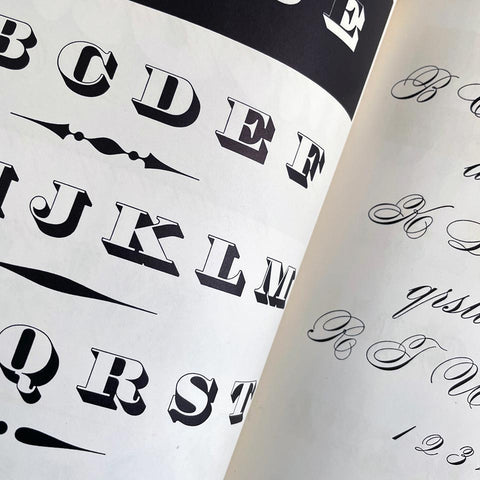 E
B C D E F
I J K L M
Q R S T
B
K
qrstu
R T
1 2 3